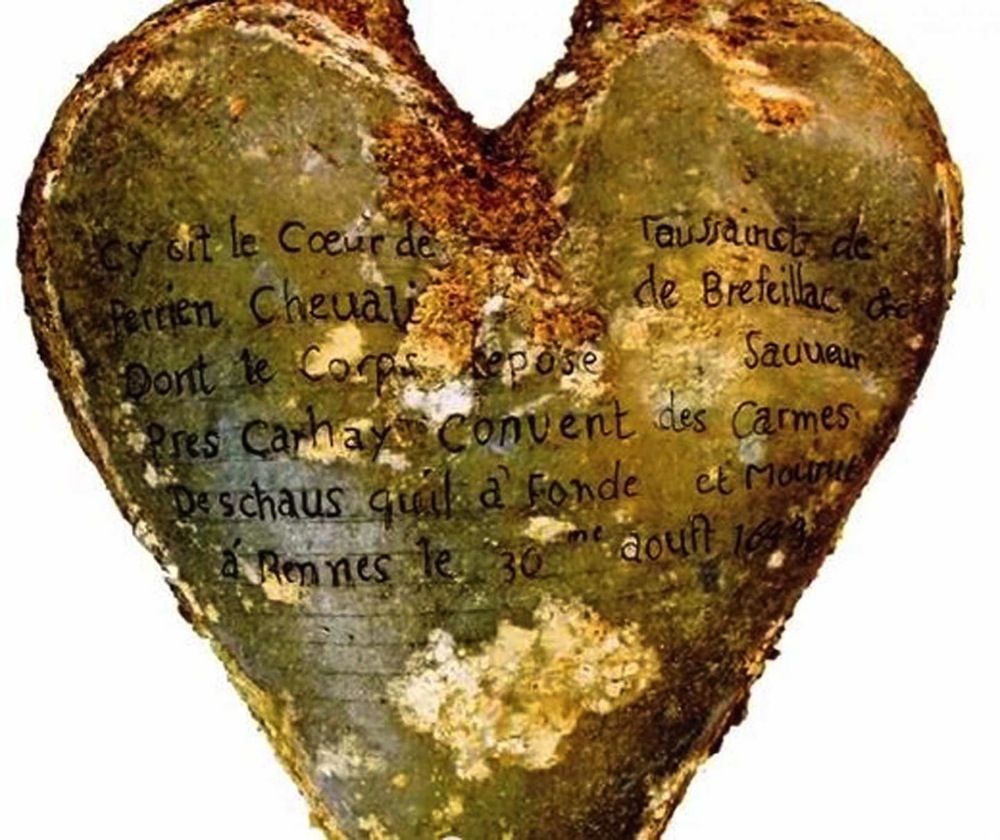 Cy Git le Cœur de Toussainct de
Perrien Chevali de Brefeillac &c
Dont le Corps Repose Sauveur
Pres Carhay Convent des Carmes
Deschaus quil à Fonde et Mourut
á Rennes le 30me aoust